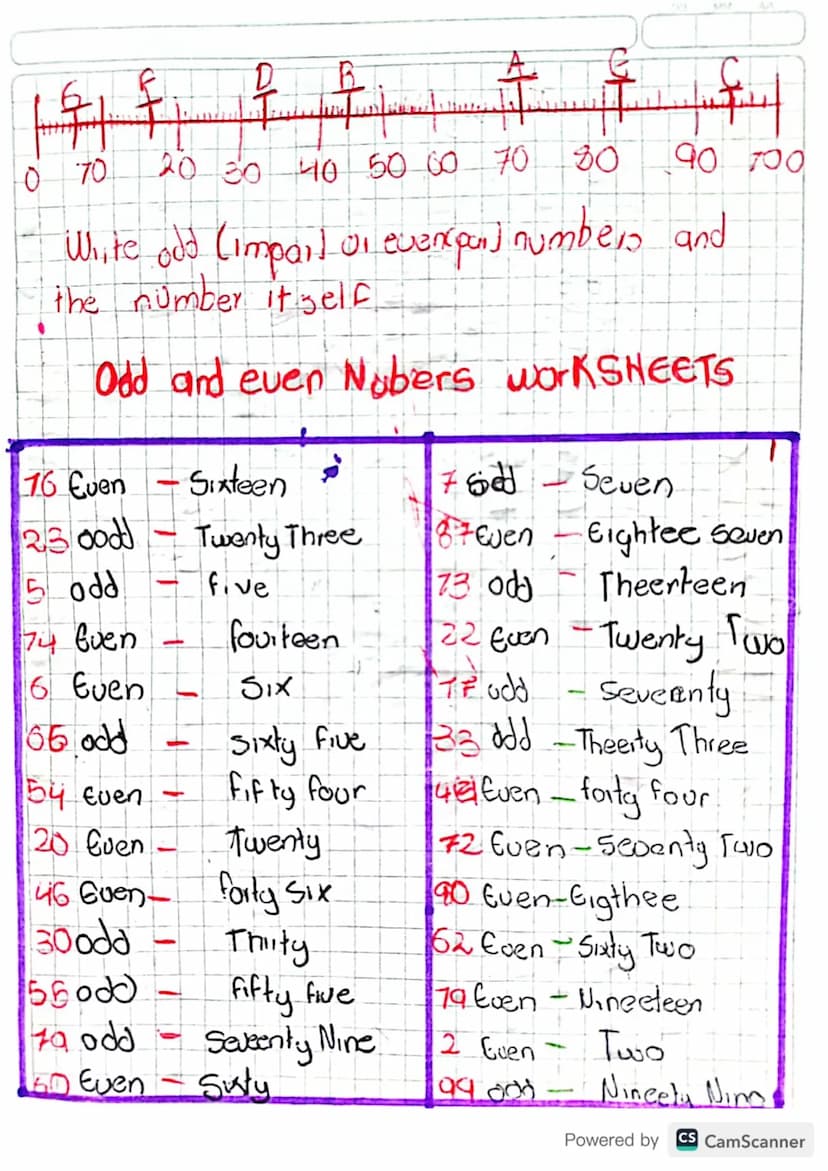 G F D B A E C
0 10 20 30 40 50 60 70 80 90 100
Write odd (impar) or even(par) numbers and
the number itself
Odd and even Nubers worKSHEETS
16 Even - Sixteen
23 oodd - Twenty Three
5 odd - five
14 Even - fourteen
6 Even - Six
65 odd - sixty five
54 Even - fifty four
20 Even - Twenty
46 Even - forty six
30 odd - Thirty
55 odd - fifty five
79 odd - Seveenty Nine
60 Even - Sixty
7 odd - Seven
87 Even - Eightee seven
13 odd - Theerteen
22 Even - Twenty Two
17 odd - Seveenty
33 odd - Theerty Three
Even - forty four
72 Even - Seventy Two
90 Even - Eigthee
62 Even - Sixty Two
19 Even - Nineeteen
2 Even - Two
99 odd - Nineety Nine
Powered by CS CamScanner